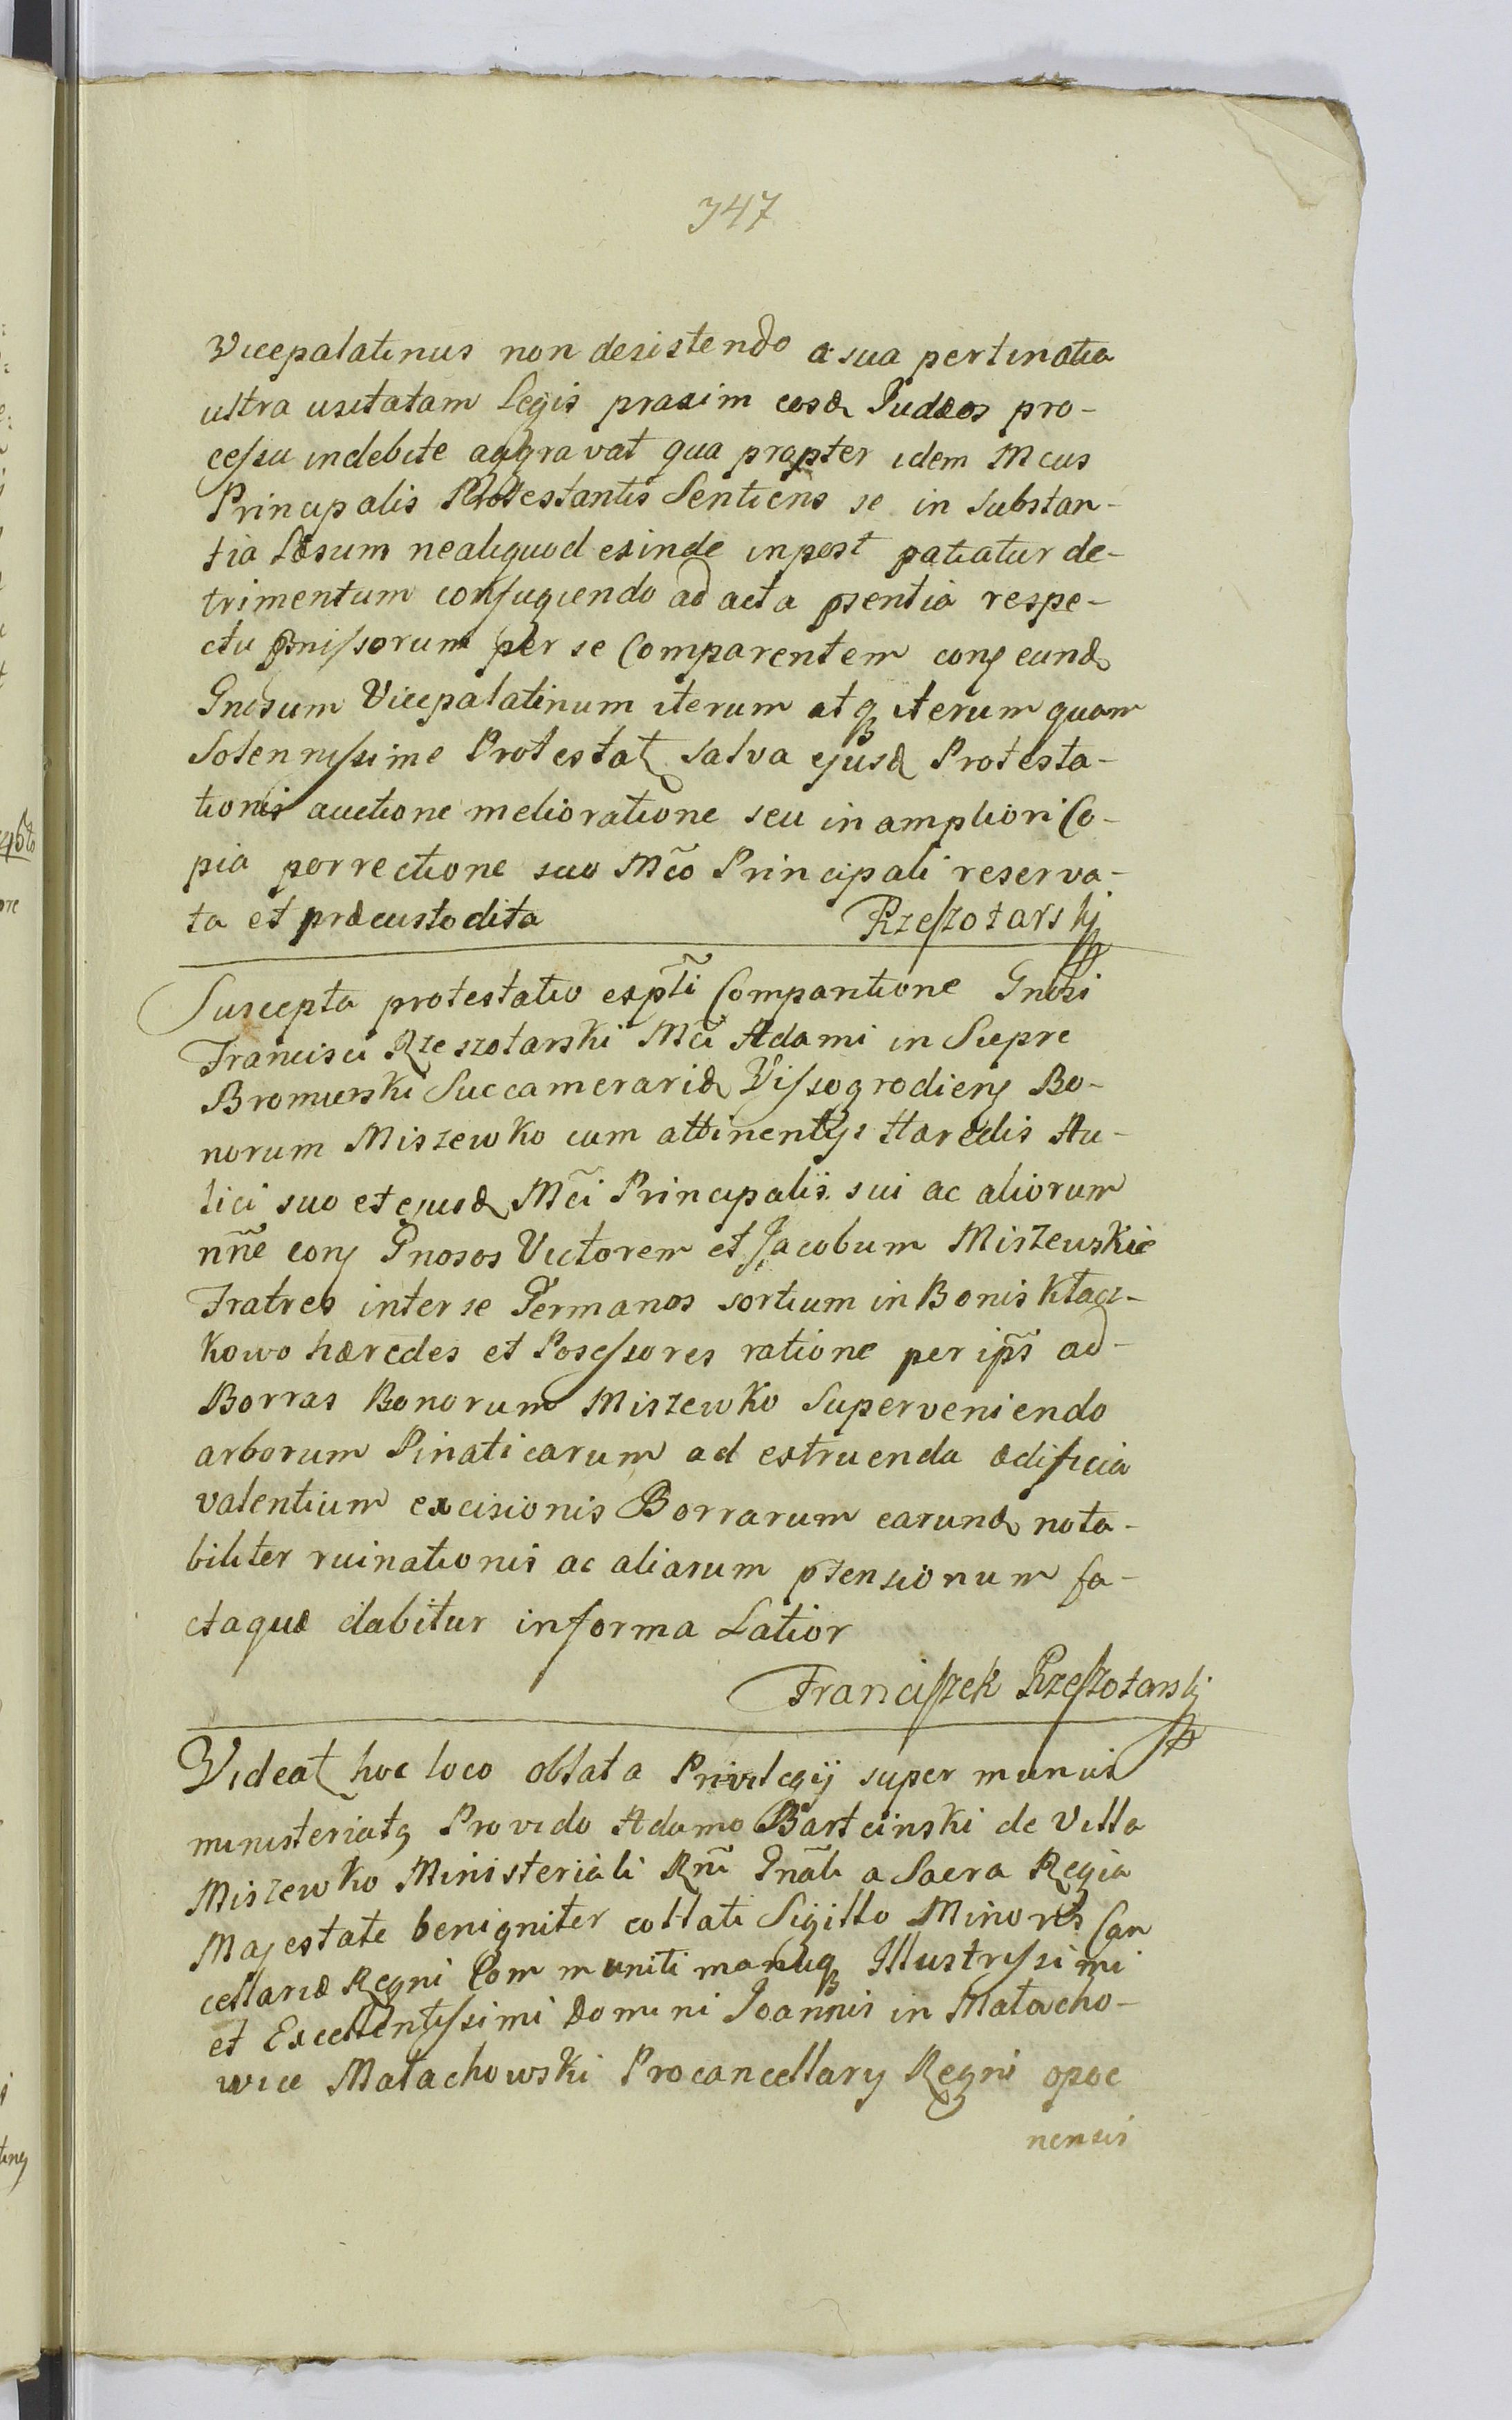 347
Vicepalatinus non desistendo a sua pertinatia
ultra usitatam Legis praxim eosd Judæos pro-
cessu indebite aggravat qua propter idem Mcus
Principalis Protestantis Sentiens se in Substan-
tia Læsum ne aliquod exinde inpost patiatur de-
trimentum confugiendo ad acta psentia respe-
ctu pmissorum per se Comparentem conz eund
Gnosum Vicepalatinum iterum atq iterum quam
Solennissime Protestat Salva ejusd Protesta-
tionis auctione melioratione seu in ampliori Co-
pia porrectione suo Mco Principali reserva-
ta et præcustodita Rzeszotarskj
Suscepta protestatio expti Comparitione Gnosi
Francisci Rzeszotarski Mci Adami in Siepre
Bromierski Succamerarid Vissogrodienz Bo-
norum Miszewko cum attinentijs Hæredis Au-
lici suo et ejusd Mci Principalis sui ac aliorum
nne conz Gnosos Victorem et Jacobum Miszewskie
Fratres inter se Germanos sortium in Bonis Kłacz-
kowo hæredes et Possessores ratione per ips ad
Borras Bonorum Miszewko Superveniendo
arborum Pinaticarum ad extruenda ædificia
valentium excisionis Borrarum earund nota-
biliter ruinationis ac aliarum ptensionum fa-
ctaquæ dabitur in forma Latior
Franciszek Rzeszotarskj
Videat hoc loco oblata Privilegij super munus
ministeriatq Provido Adamo Bartciński de Villa
Miszewko Ministeriali Rni Gnali a Sacra Regia
Majestate benigniter collati Sigillo Minoris Can
cellariæ Regni Communiti manuq Illustrissimi
et Excellentissimi Domini Joannis in Małacho-
wice Małachowski Procancellary Regni opoc
nensis